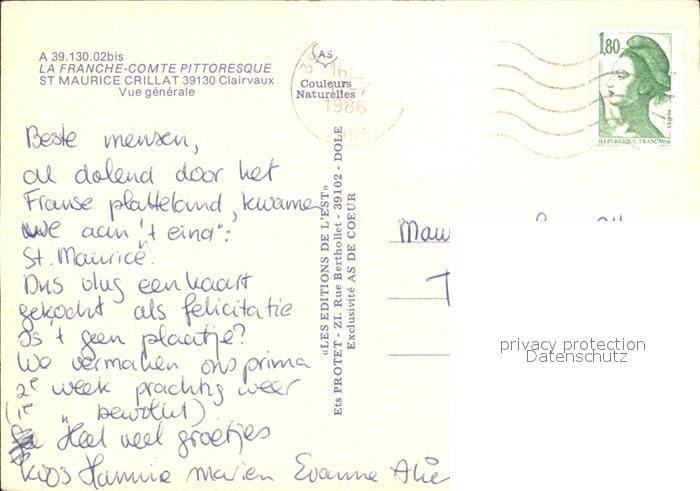 A 39.130.02bis
LA FRANCHE-COMTE PITTORESQUE
ST MAURICE CRILLAT 39130 Clairvaux
Vue générale
AS
Couleurs
Naturelles
1986
1,80
REPUBLIQUE FRANCAISE
Beste mensen,
al dolend door het
Franse platteland, kwamen
we aan 't eind:
St. Maurice.
Dus vlug een kaart
gekocht als felicitatie
Is 't geen plaatje?
We vermaken ons prima
2e week prachtig weer
(1e " bewolkt)
Heel veel groetjes
Koos Hannie Marien Evanne
«LES EDITIONS DE L'EST»
Ets PROTET - Z.I. Rue Berthollet - 39102 - DOLE
Exclusivité AS DE COEUR
privacy protection
Datenschutz